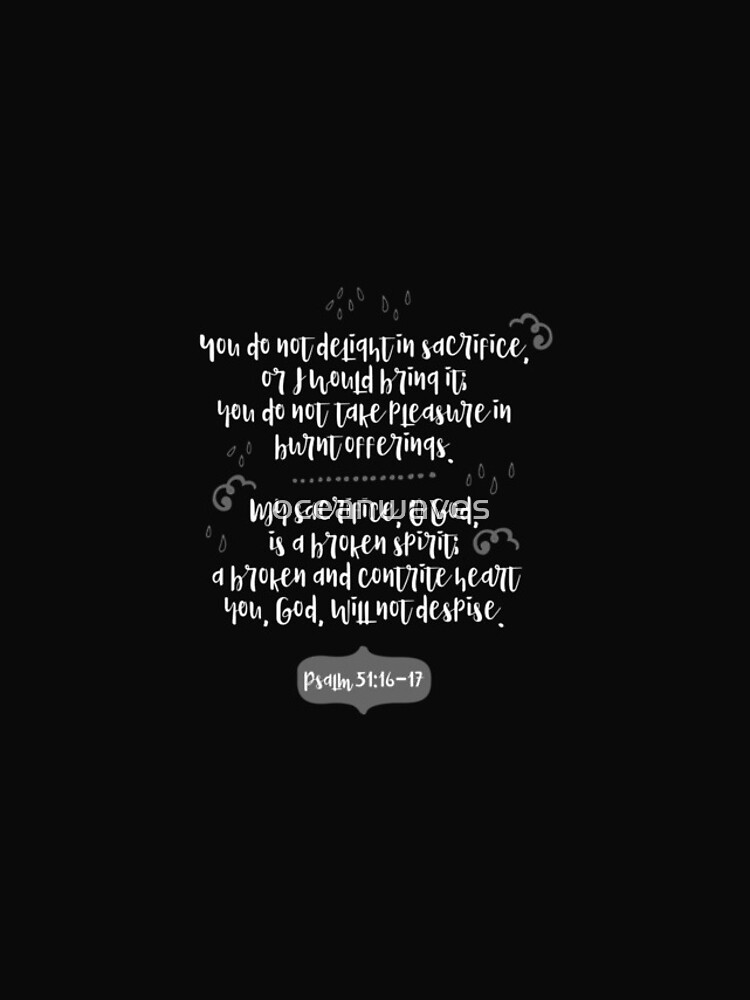 You do not delight in sacrifice,
or I would bring it;
you do not take pleasure in
burnt offerings.
My sacrifice, O God,
oceanwaves
is a broken spirit;
a broken and contrite heart
you, God, will not despise.
Psalm 51:16-17